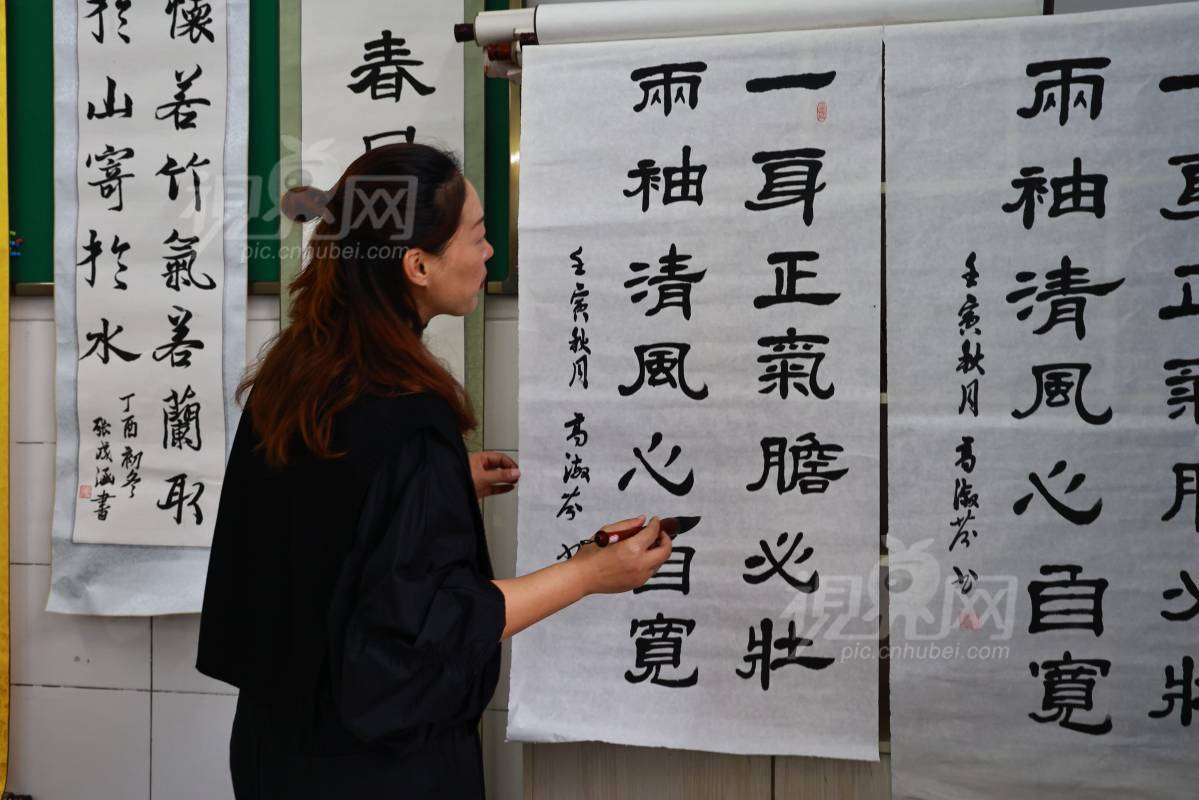 兩袖清風心自寬
壬寅秋月 高淑芬书
一身正氣膽必壯
兩袖清風心自寬
壬寅秋月 高淑芬
春
懷若竹氣若蘭取
於山寄於水
丁酉初冬
涵書
視界网
pic.cnhubei.com
視界网
pic.cnhubei.com